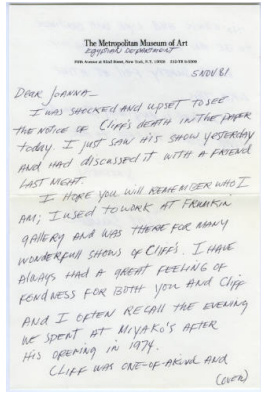 The Metropolitan Museum of Art
EGYPTIAN DEPARTMENT
Fifth Avenue at 82nd Street, New York, N.Y. 10028
5 NOV 81
DEAR JOANNA—
I WAS SHOCKED AND UPSET TO SEE
THE NOTICE OF CLIFF'S DEATH IN THE PAPER
TODAY. I JUST SAW HIS SHOW YESTERDAY
AND HAD DISCUSSED IT WITH A FRIEND
LAST NIGHT.
I HOPE YOU WILL REMEMBER WHO I
AM; I USED TO WORK AT FRUMKIN
GALLERY AND WAS THERE FOR MANY
WONDERFULL SHOWS OF CLIFF'S. I HAVE
ALWAYS HAD A GREAT FEELING OF
FONDNESS FOR BOTH YOU AND CLIFF
AND I OFTEN RECALL THE EVENING
WE SPENT AT MIYAKO'S AFTER
HIS OPENING IN 1974.
CLIFF WAS ONE-OF-A-KIND AND
(over)